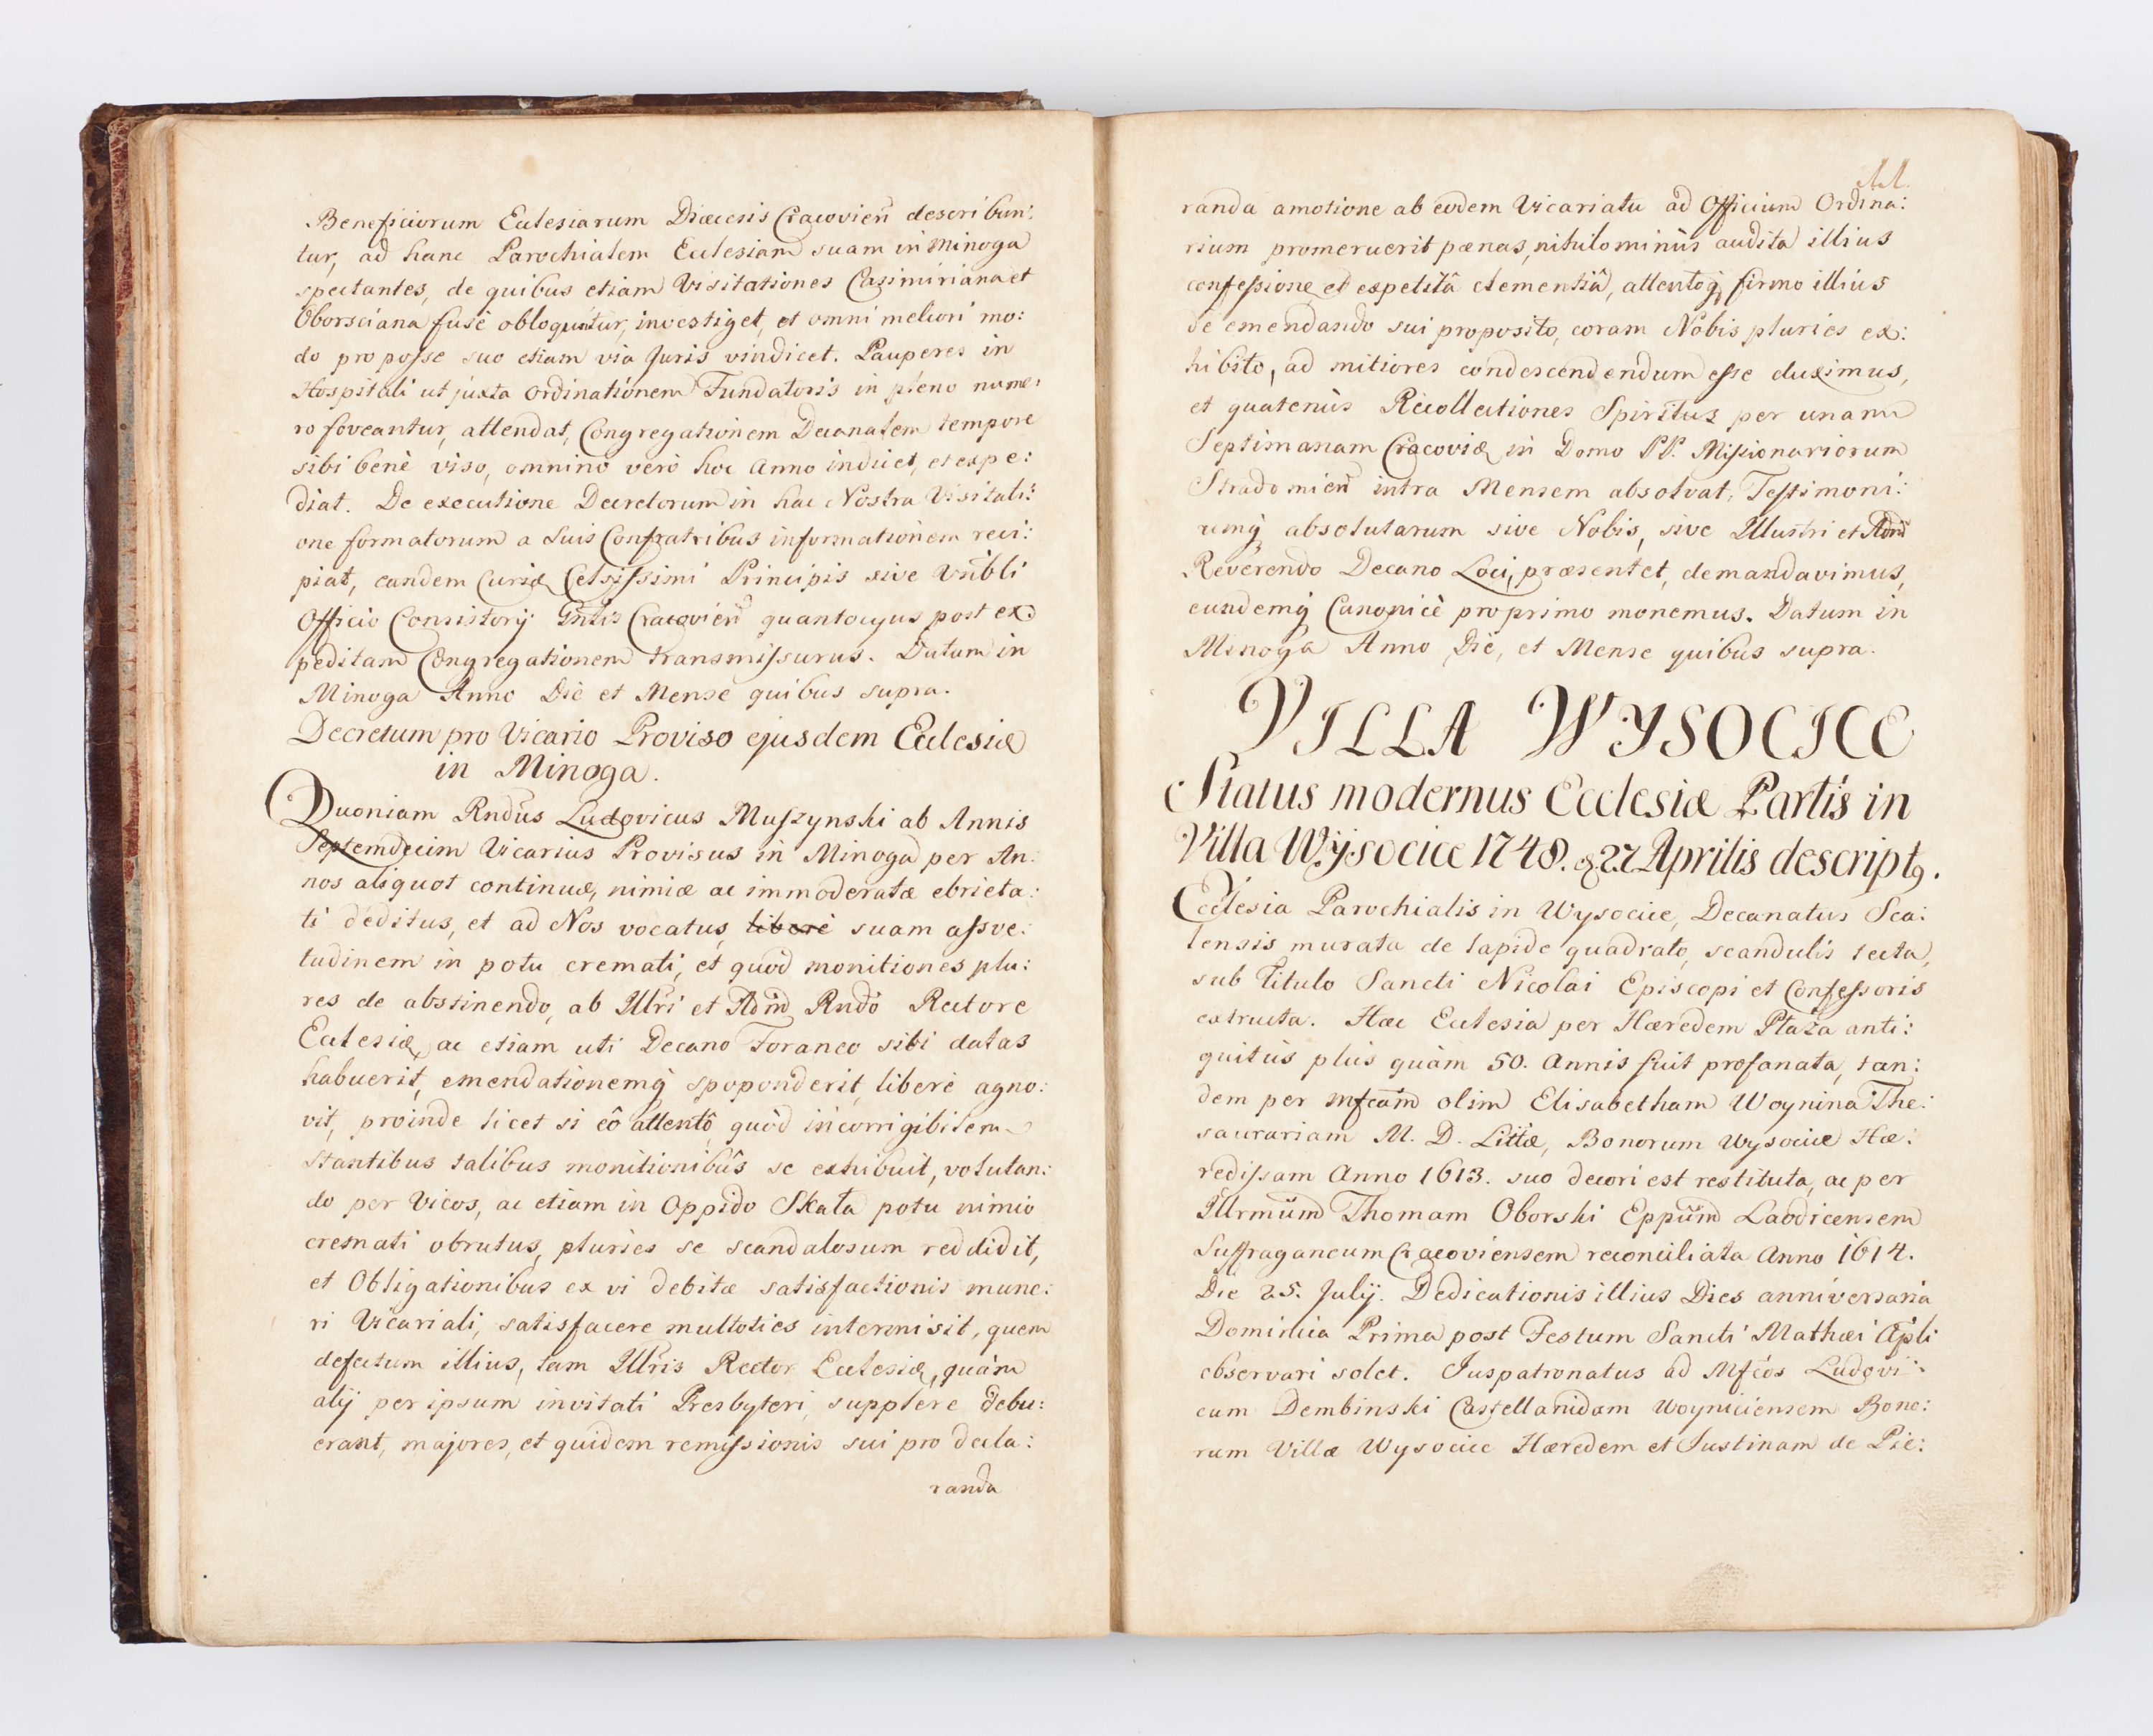 Beneficiorum Ecclesiarum Diæcesis Cracovien̄ describun:
tur, ad hanc Parochialem Ecclesiam suam in Minoga
spectantes, de quibus etiam Visitationes Casimiriana et
Oborsciana fusè obloquntur, investiget, et omni meliori mo:
do pro posse suo etiam via Juris vindicet. Pauperes in
Hospitali ut juxta ordinationem Fundatoris in pleno nume:
ro foveantur, attendat, Congregationem Decanalem tempore
sibi benè viso, omninò verò hoc Anno indicet, et expe:
diat. De executione Decretorum in hac Nostra Visitati:
one formatorum a suis Confratribus informationem reci:
piat, eandem Curiæ Celsissimi Principis sive Vn̄bli
Officio Consistorij Gn̄lis Cracovien̄ quantocyus post ex:
peditam Congregationem transmissurus. Datum in
Minoga Anno Die et Mense quibus supra.
Decretum pro Vicario Proviso ejusdem Ecclesiæ
in Minoga.
Quoniam Rndūs Ludovicus Muszynski ab Annis
Septemdecim Vicarius Provisus in Minoga per An:
nos aliquot continuæ, nimiæ ac immoderatæ ebrieta:
ti deditus, et ad Nos vocatus, liberè suam assve:
tudinem in potu cremati, et quòd monitiones plu:
res de abstinendo, ab Illr̄i et Adm̄ Rndō Rectore
Ecclesiæ, ac etiam uti Decano Foraneo sibi datas
habuerit, emendationemq; spoponderit, liberè agno:
vit, proinde licet si eô attentô, quòd incorrigibilem
stantibus talibus monitionibûs se exhibuit, volutan:
do per Vicos, ac etiam in Oppido Skała potu nimio
cremati obrutus, pluries se scandalosum reddidit,
et Obligationibus ex vi debitæ satisfactionis mune:
ri Vicariali, satisfacere multoties intermisit, quem
defectum illius, tam Illr̄is Rector Ecclesiæ, quàm
alij per ipsum invitati Presbyteri, supplere debu:
erant, majores, et quidem remissionis sui pro decla:
randa
11.
randa amotione ab eodem Vicariatu ad Officium Ordina:
rium promeruerit pænas, nihilominùs audita illius
confessione, et expetitâ clementiâ, attentoq; firmo illius
de emendando sui proposito, coram Nobis pluries ex:
hibito, ad mitiores condescendendum esse duximus,
et quatenùs Recollectiones Spiritus per unam
Septimanam Cracoviæ in Domo PP. Missionariorum
Stradomien̄ intra Mensem absolvat, Testimoni:
umq; absolutarum sive Nobis, sive Illustri et Adm̄
Reverendo Decano Loci, præsentet, demandavimus,
eundemq; Canonicè pro primo monemus. Datum in
Minoga Anno Die, et Mense quibus supra.
VILLA WYSOCICE
Status modernus Ecclesiæ Partis in
Villa Wÿsocice 1748. 27 Aprilis descriptꝰ.
Ecclesia Parochialis in Wysocice, Decanatus Sca:
lensis murata de lapide quadrato, scandulis tecta,
sub Titulo Sancti Nicolai Episcopi et Confessoris
extructa. Hæc Ecclesia per Hæredem Płaza anti:
quitùs plùs quàm 50. Annis fuit profanata, tan:
dem per Mfcam̄ olim Elisabetham Woynina The:
saurariam M. D. Littæ, Bonorum Wysocice Hæ:
redissam Anno 1613. suo decori est restituta, ac per
Illrmum̄ Thomam Oborski Eppum̄ Laodicensem
Suffraganeum Cracoviensem reconciliata Anno 1614.
Die 25. Julij. Dedicationis illius Dies anniversaria
Dominica Prima post Festum Sancti Mathæi Ap̄li
observari solet. Juspatronatus ad Mfcos Ludovi:
cum Dembinski Castellanidam Woyniciensem Bono:
rum Villæ Wysocice Hæredem et Justinam de Pie: